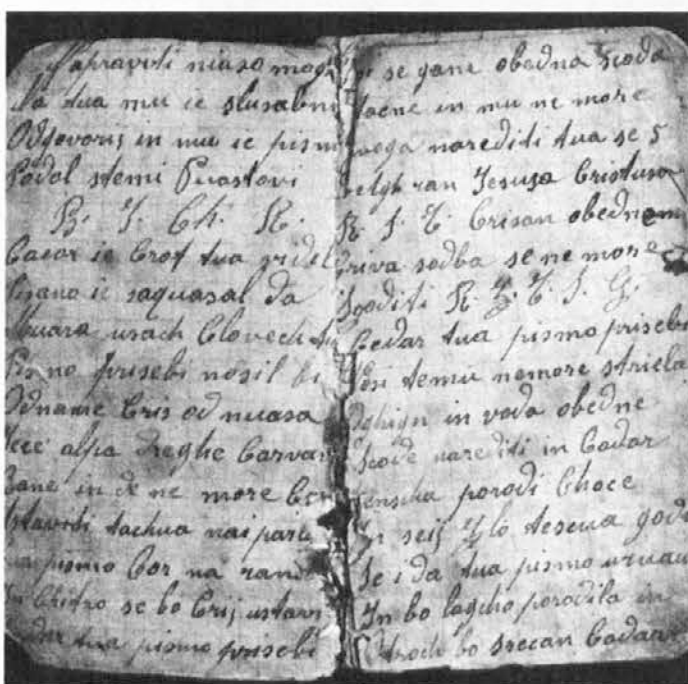 Napraviti niaso mog
da tua mu ie slusabni
Odgovorij in mu ie pism
Podal stemi Puastovi
B. I. Ch. R.
Cacor ie Crof tua videl
Pisano ie saquasal da
Muara usach Clovech
Pismo prisebi nosil bi
Odname Cris od nuasa
alpa dreghe Carvar
in de ne more
Ustaviti tachua nai
na pismo Cor na ran
In Chitro se bo Crij ustavi
tua pismo prisebi
se gane obedna scoda
in mu ne more
narediti tua se 5
ran Jesusa Cristusa
R. I. T. Crisan obedna
Criva sodba se ne more
sgoditi R. Z. T. I. G.
Cadar tua pismo prisebi
Nosi temu nemore striela
Oghign in voda obedne
Scode narediti in Cadar
Senscha porodi Choce
In seij lo tescua
Se i da tua pismo
In bo lagcho porodila in
Otroch bo srecan Cadar